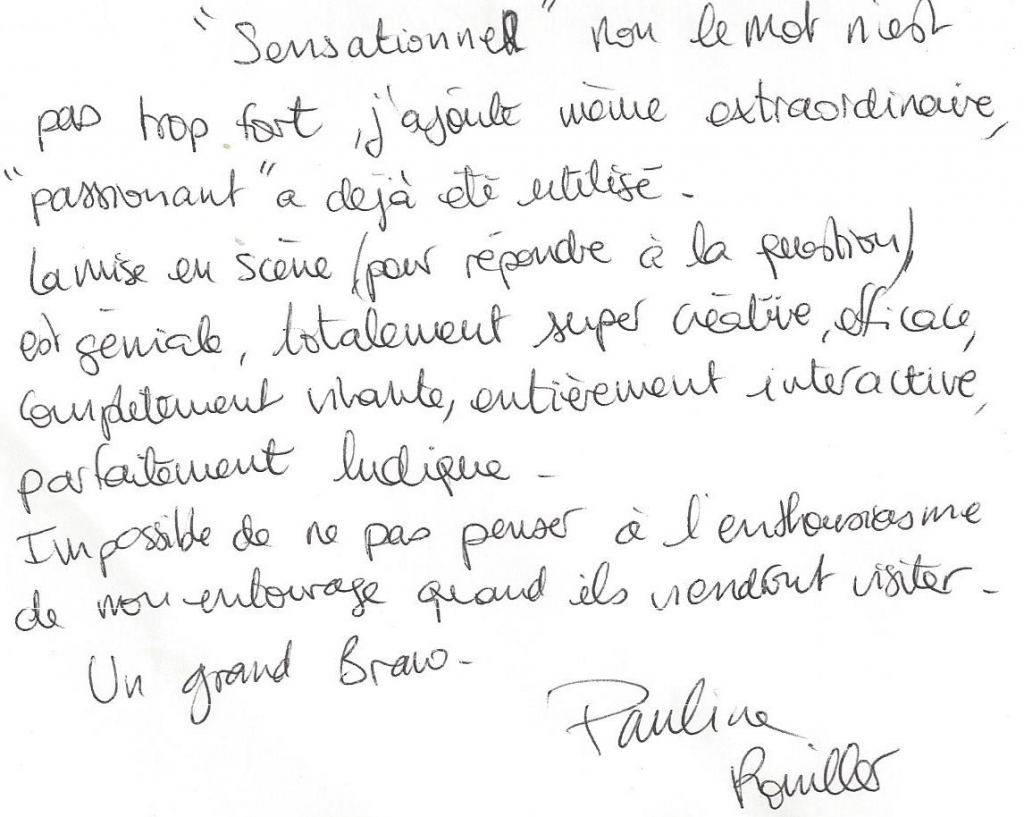 "Sensationnel" non le mot n'est
pas trop fort, j'ajoute même extraordinaire,
"passionant" a déjà été utilisé -
La mise en scène (pour répondre à la question)
est géniale, totalement super créative, efficace,
complètement vivante, entièrement interactive,
parfaitement ludique -
Impossible de ne pas penser à l'enthousiasme
de mon entourage quand ils viendront visiter -
Un grand Bravo -
Pauline